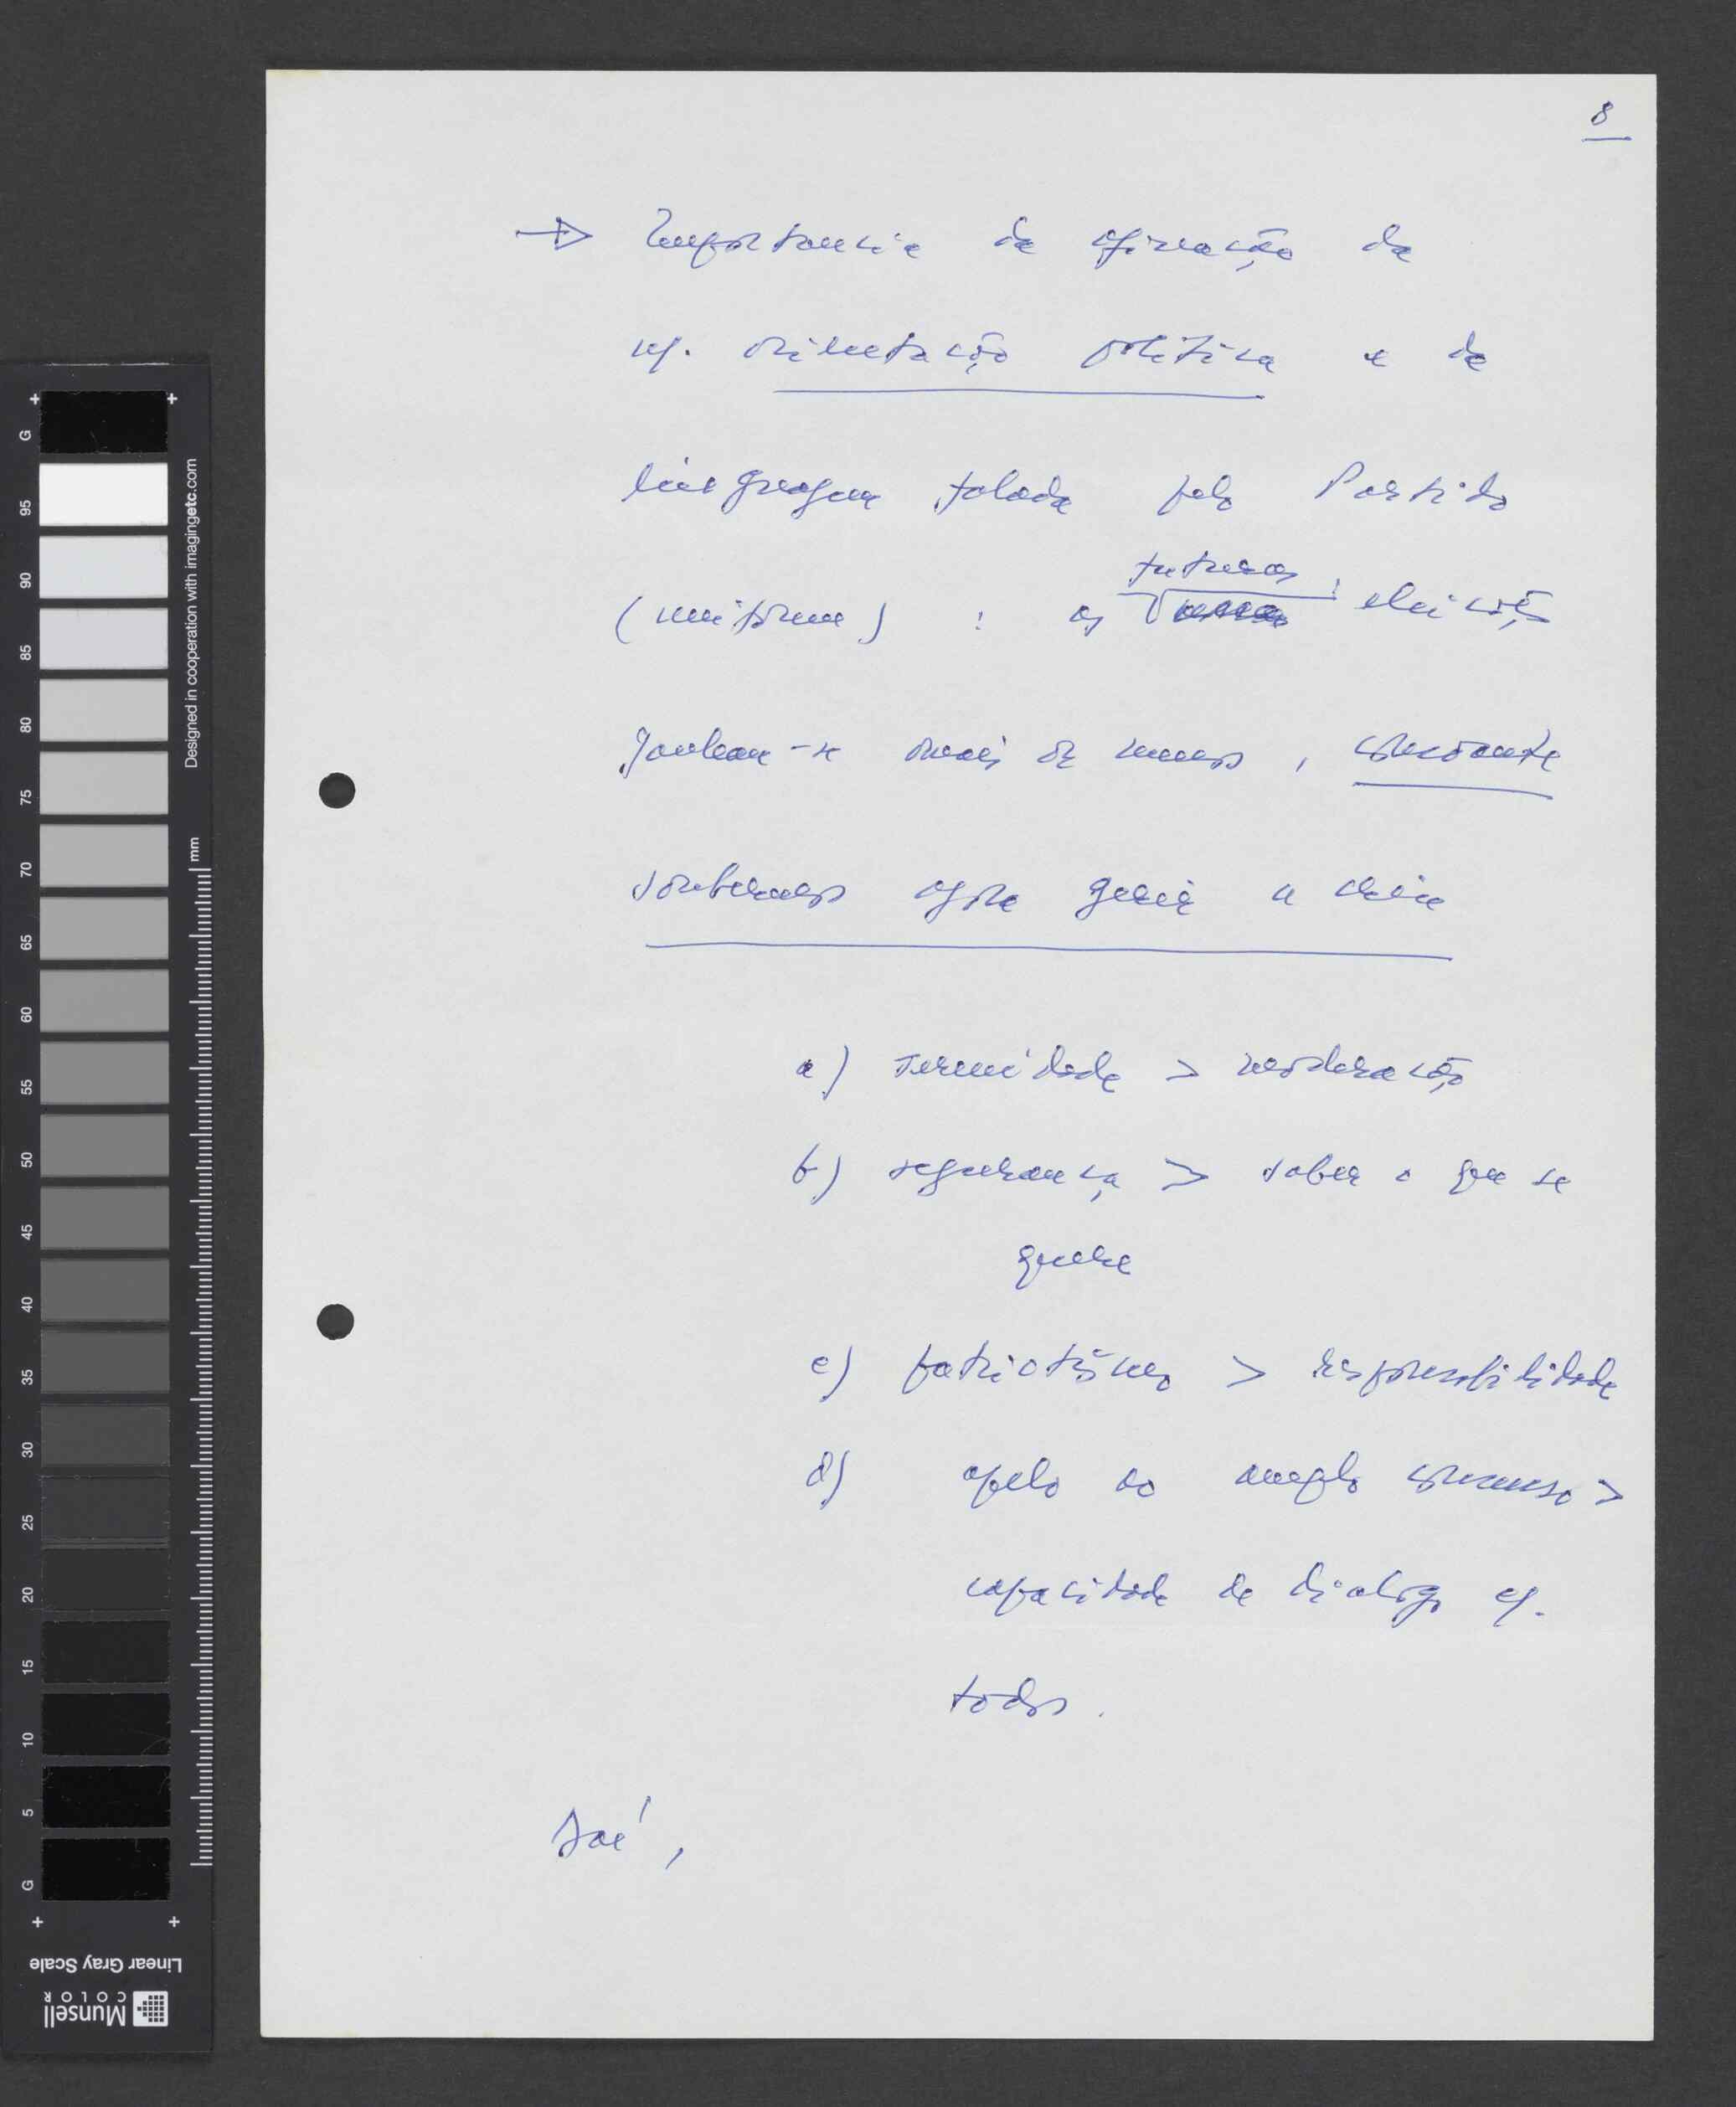 8
→ Importancia da afinação da
n/. orientação política e da
linguagem falada pelo Partido
futuras
(uniforme) : as eleições
ganham-se mais ou menos, consoante
soubermos agora gerir a crise
a) serenidade > moderação
b) segurança > saber o que se
quere
c) patriotismo > responsabilidade
d) apelo ao amplo consenso >
capacidade de dialogo c/.
todos.
Daí,
G
95
90
85
80
75
70
65
60
55
50
45
40
35
30
25
20
15
10
5
G
Designed in cooperation with imagingetc.com
mm
Linear Gray Scale
Munsell
COLOR